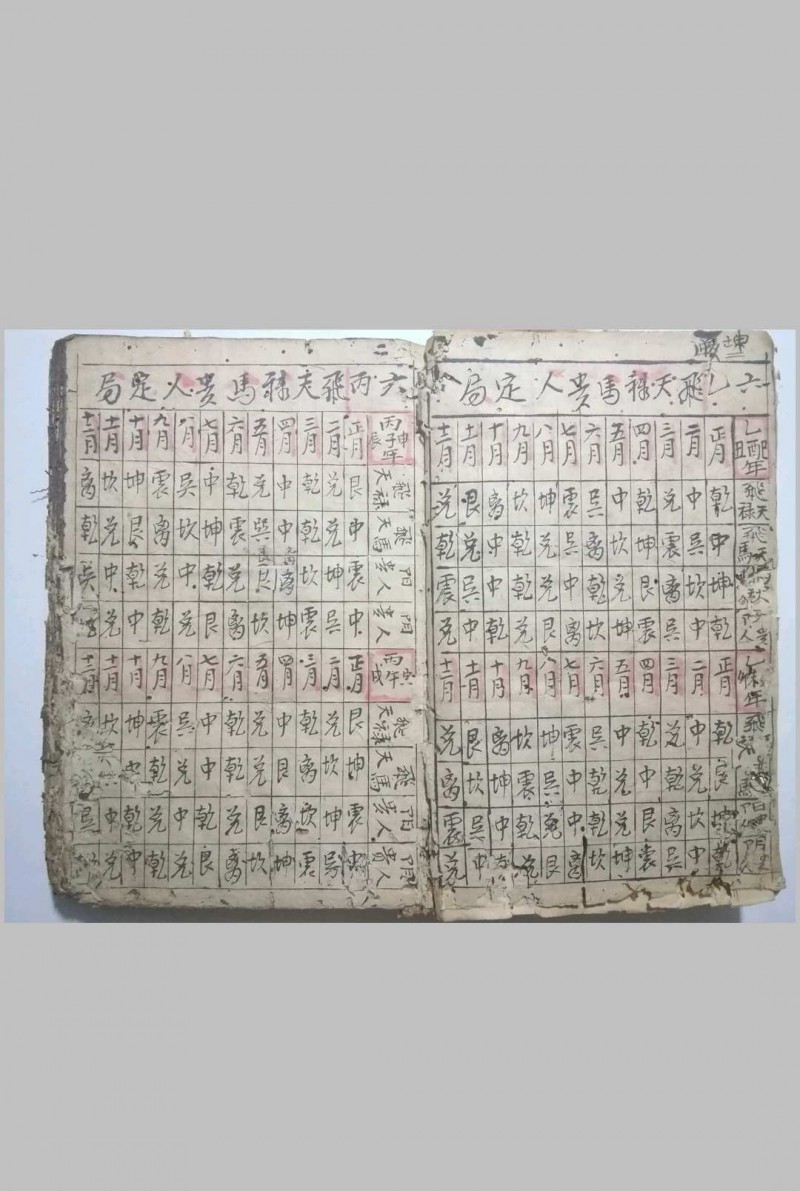 六乙飛天祿馬贵人定局
乙酉年 正月 二月 三月 四月 五月 六月 七月 八月 九月 十月 十一月 十二月
乾 中 兑 乾 中 巽 震 坤 坎 离 艮 兑
坤 中 震 坤 坎 离 巽 兑 乾 中 兑 乾
坤 坎 离 艮 兑 乾 中 兑 乾 中 巽 震
乾 中 巽 震 坤 坎 离 艮 兑 乾 中 兑
年 正月 二月 三月 四月 五月 六月 七月 八月 九月 十月 十一月 十二月
乾 中 兑 乾 中 巽 震 坤 坎 离 艮 兑
艮 兑 乾 中 兑 乾 中 巽 震 坤 坎 离
坤 坎 离 艮 兑 乾 中 兑 乾 中 巽 震
乾 中 巽 震 坤 坎 离 艮 兑 中 兑
六丙飛天祿馬贵人定局
丙子年 申辰 正月 二月 三月 四月 五月 六月 七月 八月 九月 十月 十一月 十二月
飛天祿 艮 兑 乾 中 兑 乾 中 巽 震 坤 坎 离
飛天馬 中 兑 乾 中 巽 震 坤 坎 离 艮 兑 乾
阳贵人 震 坤 坎 离 巽 兑 乾 中 兑 乾 中 巽
阴贵人 中 巽 震 坤 坎 离 艮 兑 乾 中 兑
丙午年 寅戌 正月 二月 三月 四月 五月 六月 七月 八月 九月 十月 十一月 十二月
飛天祿 艮 兑 乾 中 兑 乾 中 巽 震 坤 坎 离
飛天馬 坤 坎 离 艮 兑 乾 中 兑 乾 中
阳贵人 震 坤 坎 离 艮 兑 乾 中 兑 乾 中 巽
阴贵人 中 巽 震 坤 坎 离 艮 兑 乾 中 兑